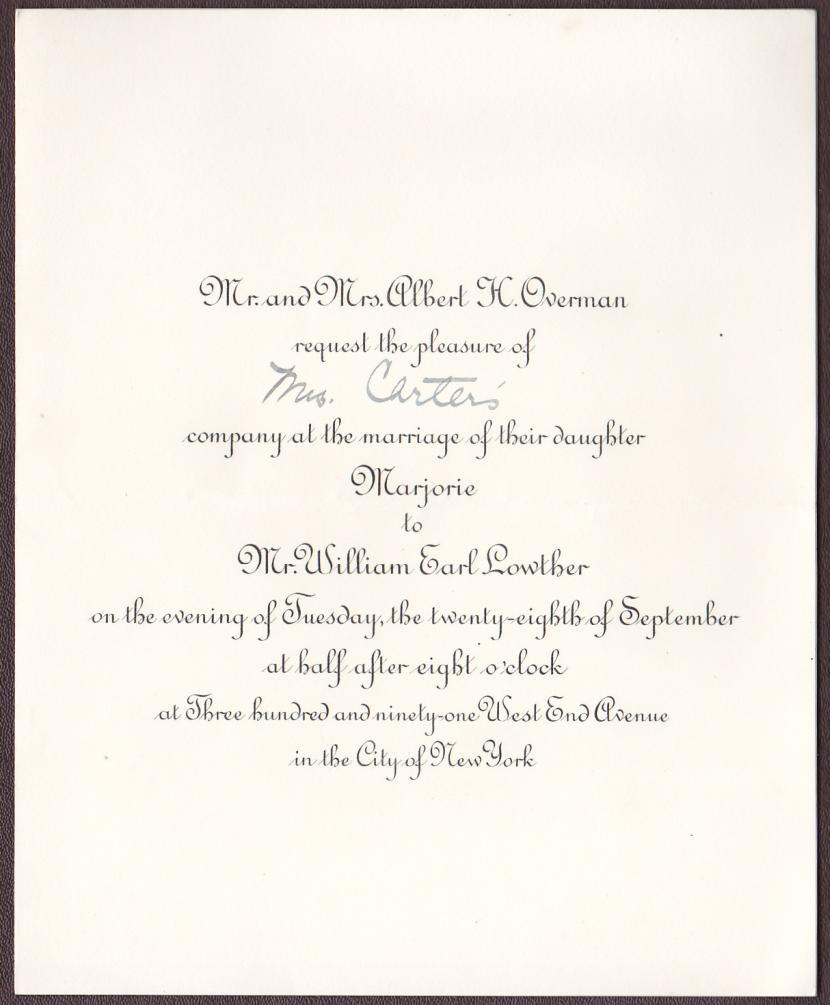 Mr. and Mrs. Albert H. Overman
request the pleasure of
Mrs. Carter's
company at the marriage of their daughter
Marjorie
to
Mr. William Earl Lowther
on the evening of Tuesday, the twenty-eighth of September
at half after eight o'clock
at Three hundred and ninety-one West End Avenue
in the City of New York